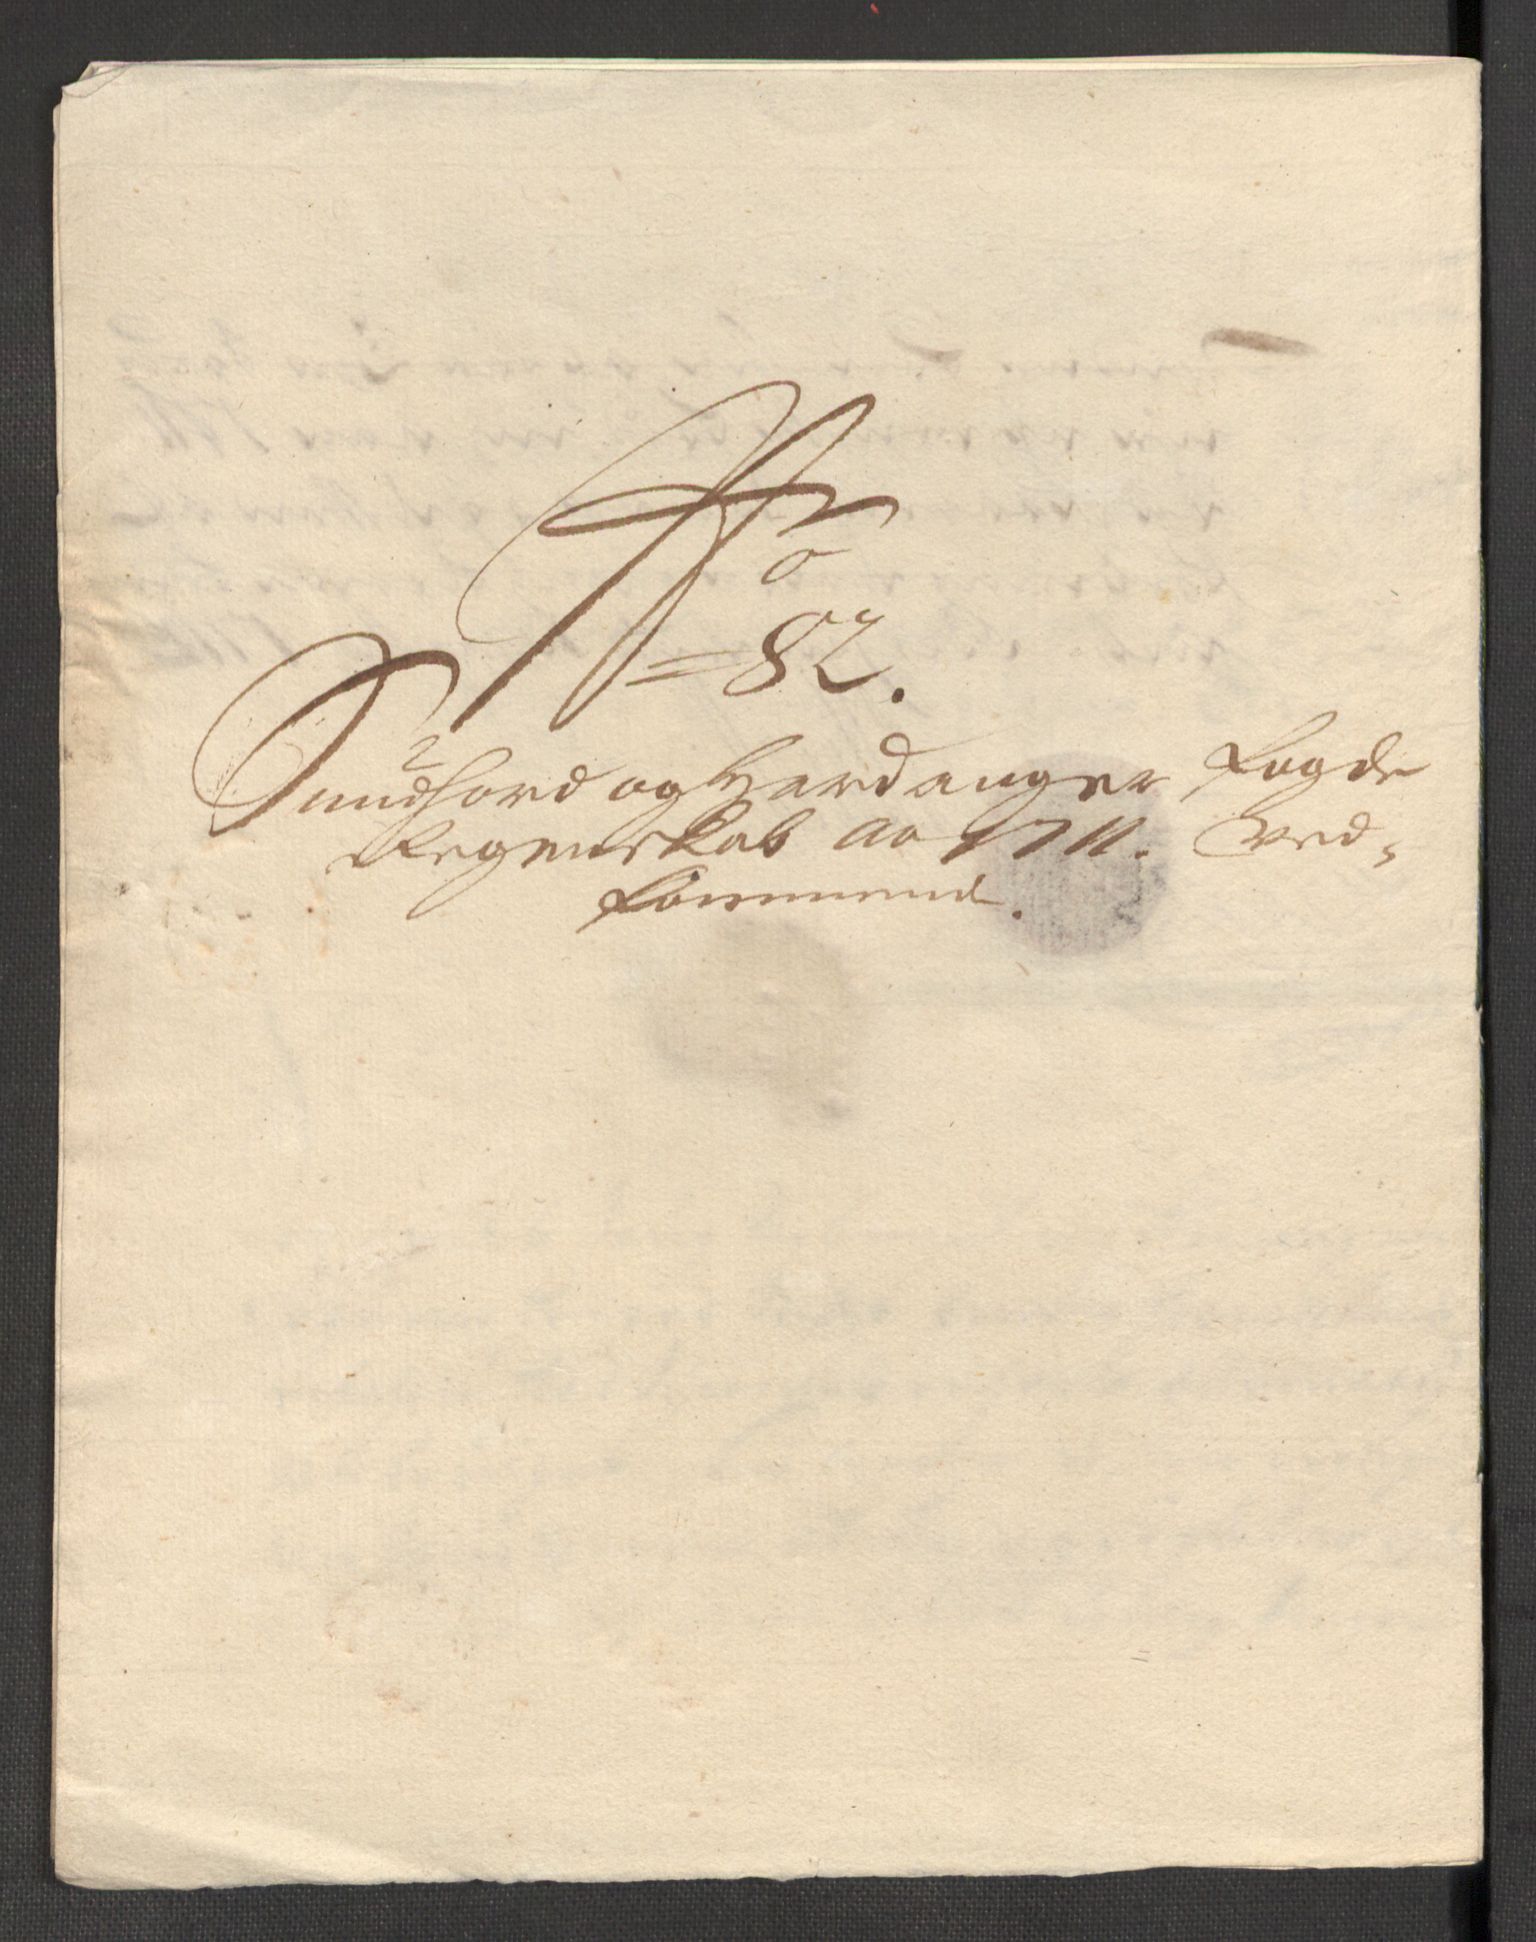 No
82.
Sundhord og Hardanger Fogde
Regenskab Ao 1711. Ved-
kommende.